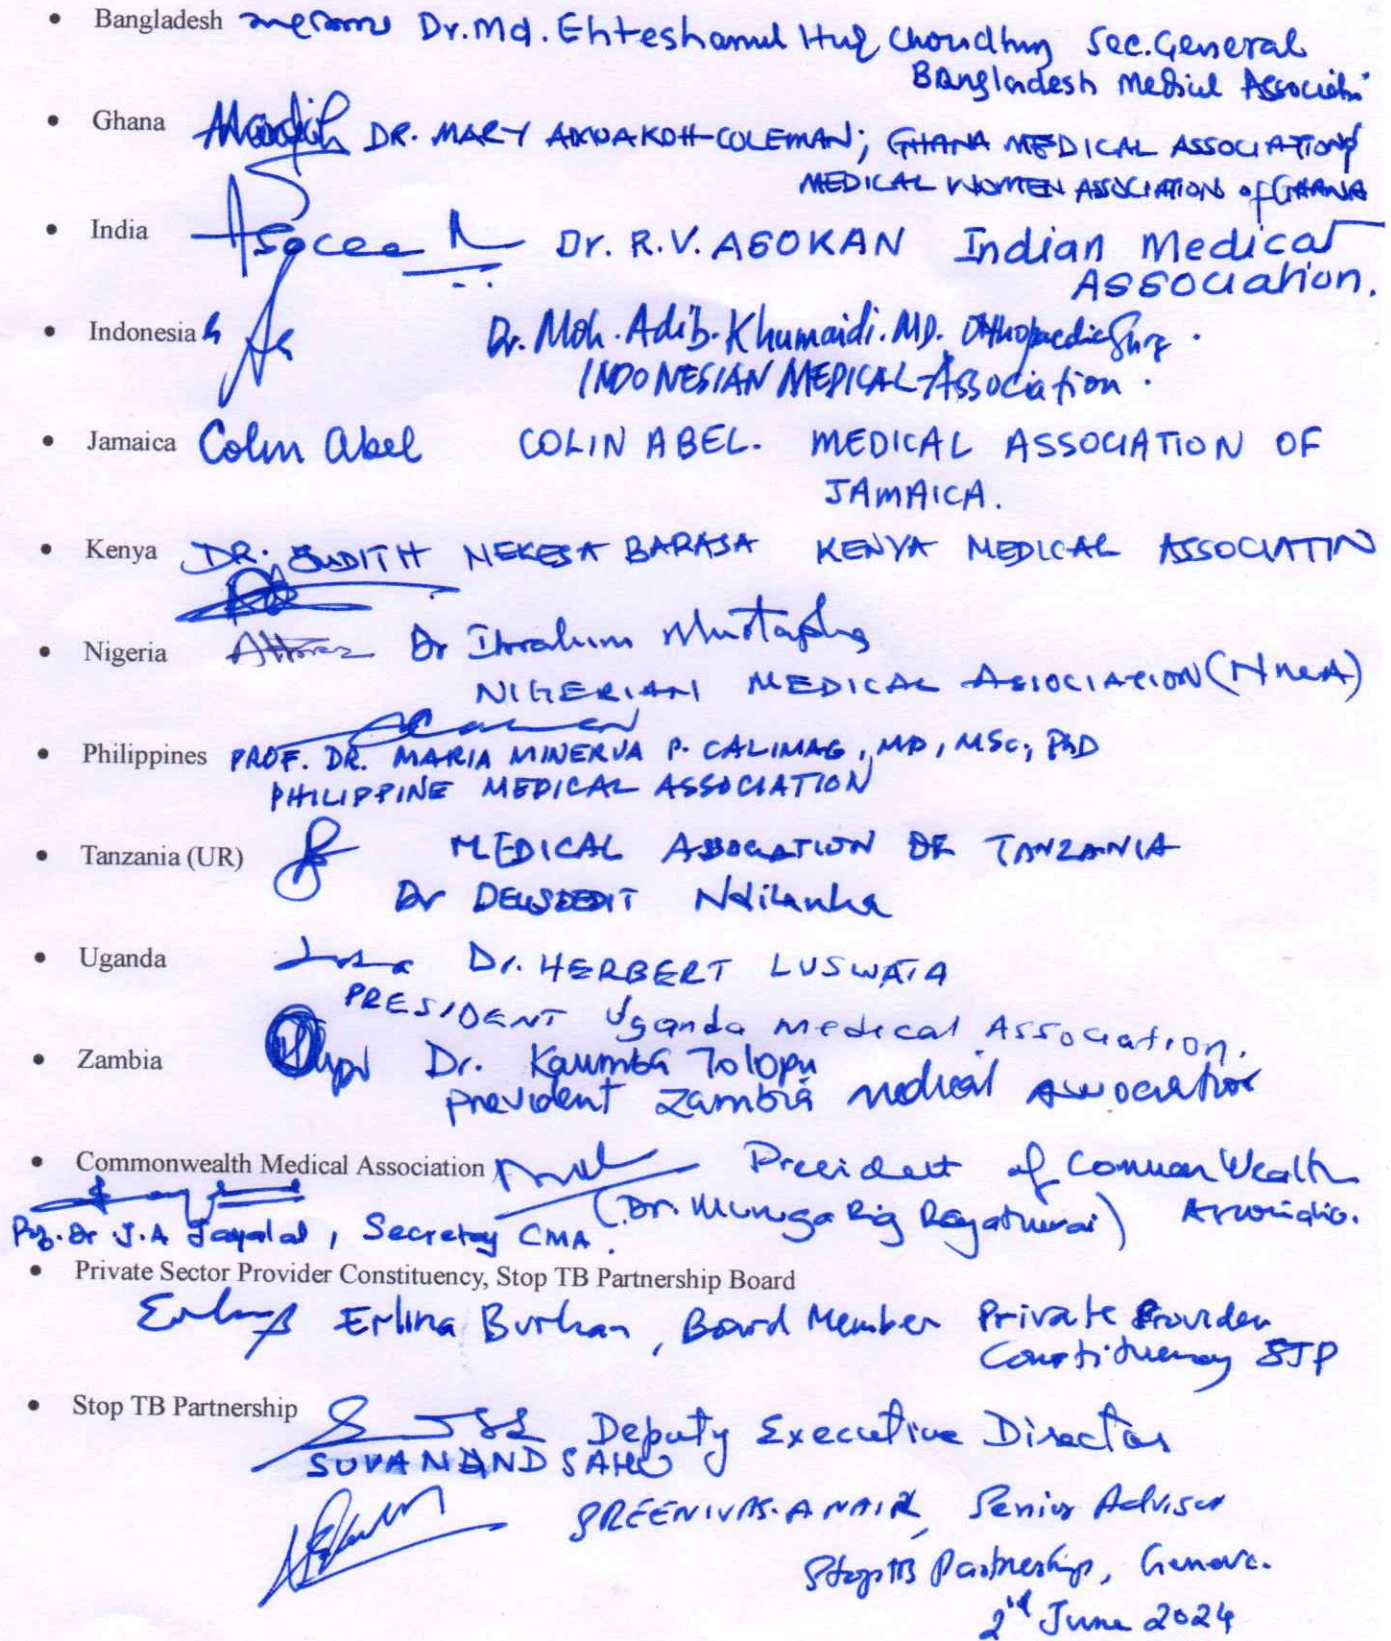 • Bangladesh Dr. Md. Ehteshamul Huq Choudhury Sec. General
Bangladesh Medical
• Ghana DR. MARY COLEMAN; GHANA MEDICAL ASSOCIATION/
MEDICAL WOMEN ASSOCIATION of GHANA
• India Dr. R.V. ASOKAN Indian Medical
ASSOCIATION.
• Indonesia Dr. Moh. Adib. Khumaidi. MD. Orthopaedic Surg.
INDONESIAN MEDICAL Association.
• Jamaica Colin Abel COLIN ABEL. MEDICAL ASSOCIATION OF
JAMAICA.
• Kenya DR. JUDITH NEKESA BARASA KENYA MEDICAL ASSOCIATIN
• Nigeria Dr Ibrahim Mustapha
NIGERIAN MEDICAL ASSOCIATION (NMA)
• Philippines PROF. DR. MARIA MINERVA P. CALIMAG, MD, MSc, PhD
PHILIPPINE MEDICAL ASSOCIATION
• Tanzania (UR) MEDICAL ASSOCIATION OF TANZANIA
Dr DEUSDEDIT Ndilanha
• Uganda Dr. HERBERT LUSWATA
PRESIDENT Uganda Medical Association.
• Zambia Dr. Kaumba Tolopu
President Zambia medical association
• Commonwealth Medical Association President of Common Wealth
J.A Jayalal, Secretary CMA.
• Private Sector Provider Constituency, Stop TB Partnership Board
Erlina Burhan, Board Member Private Provider
Constituency STP
• Stop TB Partnership Deputy Executive Director
SUVANAND SAHU
SREENIVAS. A NAIR, Senior Adviser
Stop TB Partnership, Geneva.
2nd June 2024